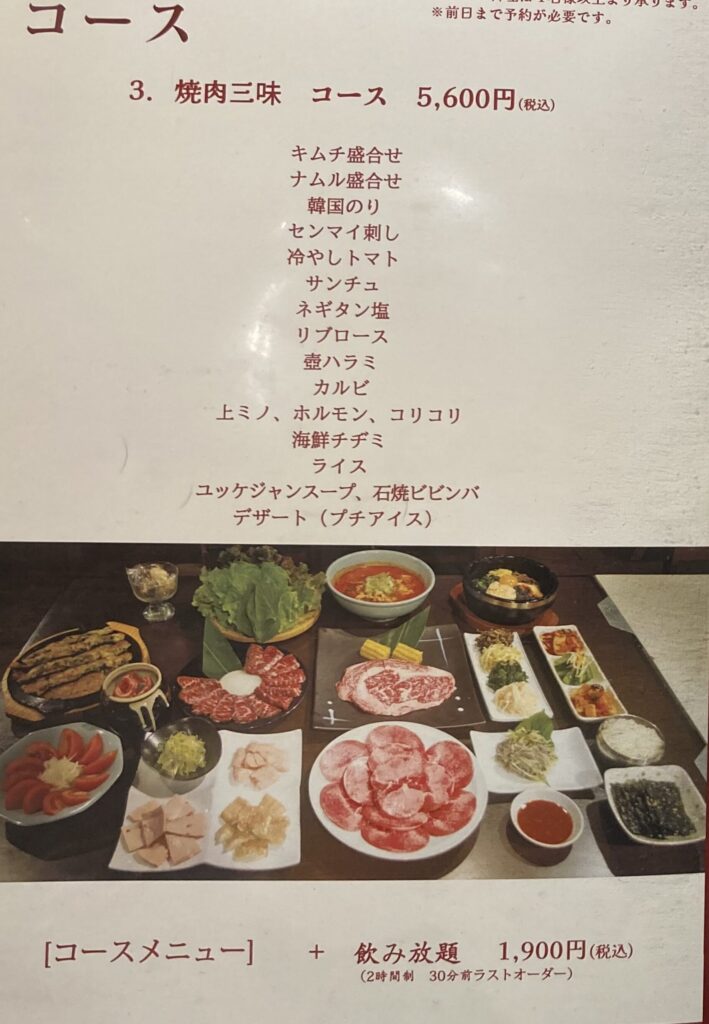 コース
より承ります。
※前日まで予約が必要です。
3. 焼肉三味 コース 5,600円(税込)
キムチ盛合せ
ナムル盛合せ
韓国のり
センマイ刺し
冷やしトマト
サンチュ
ネギタン塩
リブロース
壺ハラミ
カルビ
上ミノ、ホルモン、コリコリ
海鮮チヂミ
ライス
ユッケジャンスープ、石焼ビビンバ
デザート（プチアイス）
[コースメニュー] + 飲み放題 1,900円(税込)
（2時間制 30分前ラストオーダー）